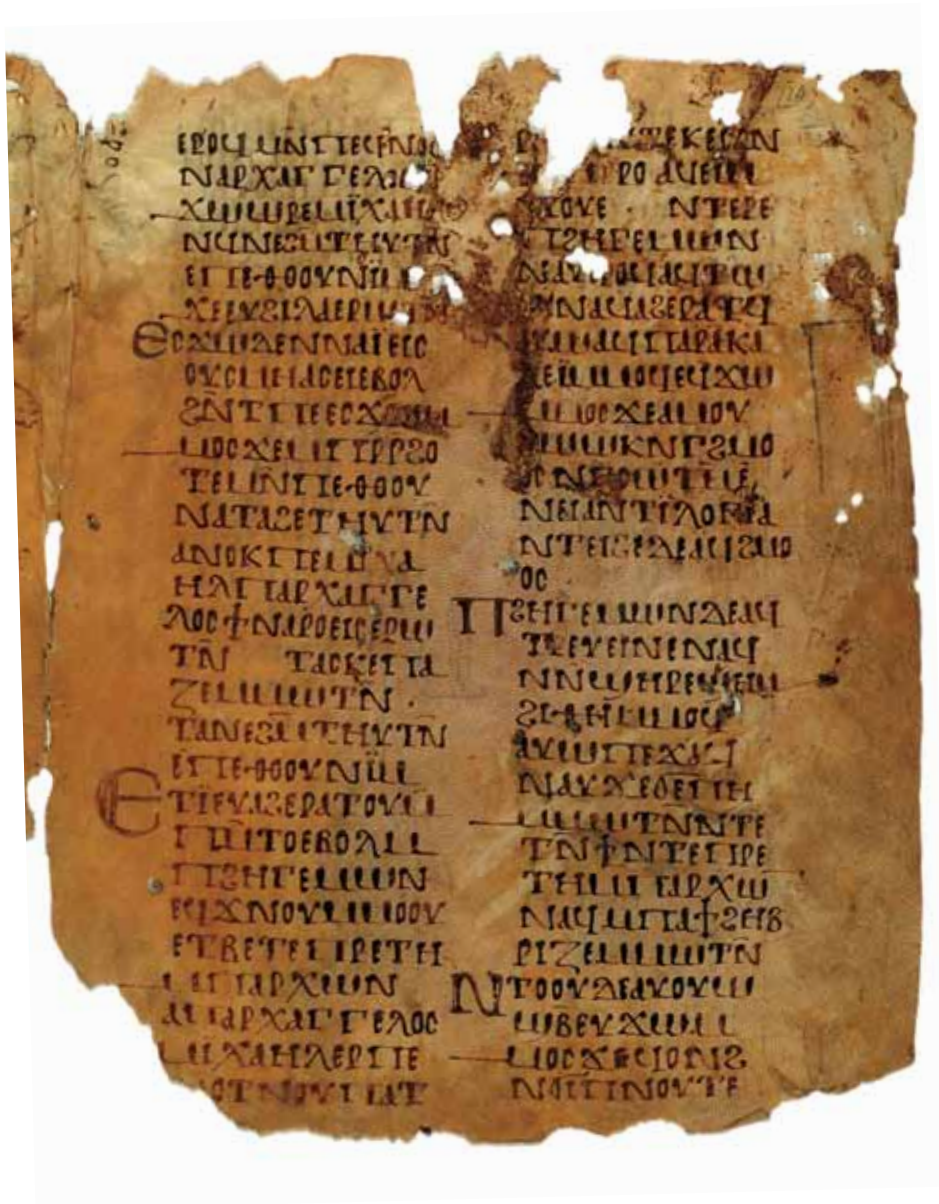 ⲉⲣⲟϥ ⲙⲛ̄ⲡⲉⲥ
ⲛⲁⲣⲭⲁⲅⲅⲉⲗ
ϫⲱⲱⲣⲉⲙⲓ̈ⲭⲁⲏⲗ
ⲛϥⲛⲉϩⲙ̄ⲧⲏⲩⲧⲛ̄
ⲉⲡⲉⲑⲟⲟⲩⲛⲓ̈ⲙ
ϫⲉ
ⲉⲥϫⲱⲇⲉⲛⲛⲁⲓ̈ⲉⲓⲥ
ⲟⲩⲥⲙⲏⲁⲥⲉⲓⲉⲃⲟⲗ
ϩⲛ̄ⲧⲡⲉⲉⲥϫⲱⲙ
ⲙⲟⲥϫⲉⲙⲡⲣⲣϩⲟ
ⲧⲉⲙⲛ̄ⲡⲉⲑⲟⲟⲩ
ⲛⲁⲧⲁϩⲉⲧⲏⲩⲧⲛ̄
ⲁⲛⲟⲕⲡⲉⲙⲓ̈ⲭⲁ
ⲏⲗⲡⲁⲣⲭⲁⲅⲅⲉ
ⲗⲟⲥϯⲛⲁⲣⲟⲉⲓⲥⲉⲣⲱ
ⲧⲛ̄ ⲧⲁⲥⲕⲉⲡⲁ
ⲍⲉⲙⲙⲱⲧⲛ̄ ·
ⲧⲁⲛⲉϩⲙ̄ⲧⲏⲩⲧⲛ̄
ⲉⲡⲉⲑⲟⲟⲩⲛⲓ̈ⲙ
ⲉⲧⲓⲉⲩⲁϩⲉⲣⲁⲧⲟⲩⲙ̄
ⲡⲙ̄ⲧⲟⲉⲃⲟⲗⲙ
ⲡϩⲏⲅⲉⲙⲱⲛ
ⲉϥϫⲛⲟⲩⲙⲙⲟⲟⲩ
ⲉⲧⲃⲉⲧⲉⲡⲣⲉⲧⲏ
ⲙⲡⲁⲣⲭⲱⲛ
ⲁⲡⲁⲣⲭⲁⲅⲅⲉⲗⲟⲥ
ⲙⲓⲭⲁⲏⲗⲉⲣⲡⲉ
ⲟⲧⲛⲟⲩⲡⲁⲧ
ⲣⲟ ⲁϥⲉⲓ
ϩⲟⲩⲉ · ⲛⲧⲉⲣⲉ
ⲡϩⲏⲅⲉⲙⲱⲛ
ⲛⲁⲩⲉⲣⲟϥⲁϥⲧⲱ
ⲟⲩⲛⲁϥⲁϩⲉⲣⲁⲧϥ
ⲁⲩⲱⲁϥⲡⲁⲣⲁⲕⲁ
ⲗⲉⲓ̈ⲙⲙⲟϥⲉϥϫⲱ
ⲙⲙⲟⲥϫⲉⲁⲙⲟⲩ
ϣⲱⲱⲕⲛⲅϩⲙⲟ
ⲟⲥⲛⲅⲥⲱⲧⲙ̄ⲉ
ⲛⲉⲓⲁⲛⲧⲓⲗⲟⲅⲓⲁ
ⲛⲧⲉⲓϩⲉⲇⲉⲁϥϩⲙⲟ
ⲟⲥ ·
ⲡϩⲏⲅⲉⲙⲱⲛⲇⲉⲁϥ
ⲧⲣⲉⲩⲉⲓⲛⲉⲛⲁϥ
ⲛⲛϣⲏⲣⲉϣⲏⲙ
ϩⲓⲑⲏⲙⲙⲟϥ
ⲁⲩⲱⲡⲉϫⲁϥ
ⲛⲁⲩϫⲉⲟⲉⲡⲏ
ⲙⲙⲱⲧⲛⲛⲧⲉ
ⲧⲛ̄ϯⲛⲧⲉⲡⲣⲉ
ⲧⲏⲙⲡⲁⲣⲭⲱ
ⲛⲁϥⲙⲡⲁϯϩⲉⲃ
ⲣⲓⲍⲉⲙⲙⲱⲧⲛ̄
ⲛⲧⲟⲟⲩⲇⲉⲁⲩⲟⲩⲱ
ϣⲃⲉⲩϫⲱⲙ
ⲙⲟⲥϫⲉϥⲟⲛϩ
ⲛϭⲓⲡⲛⲟⲩⲧⲉ